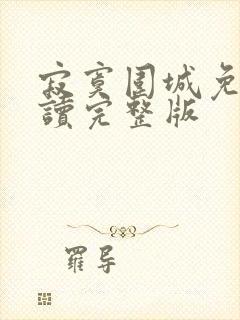 寂寞围城免
读完整版
羅导